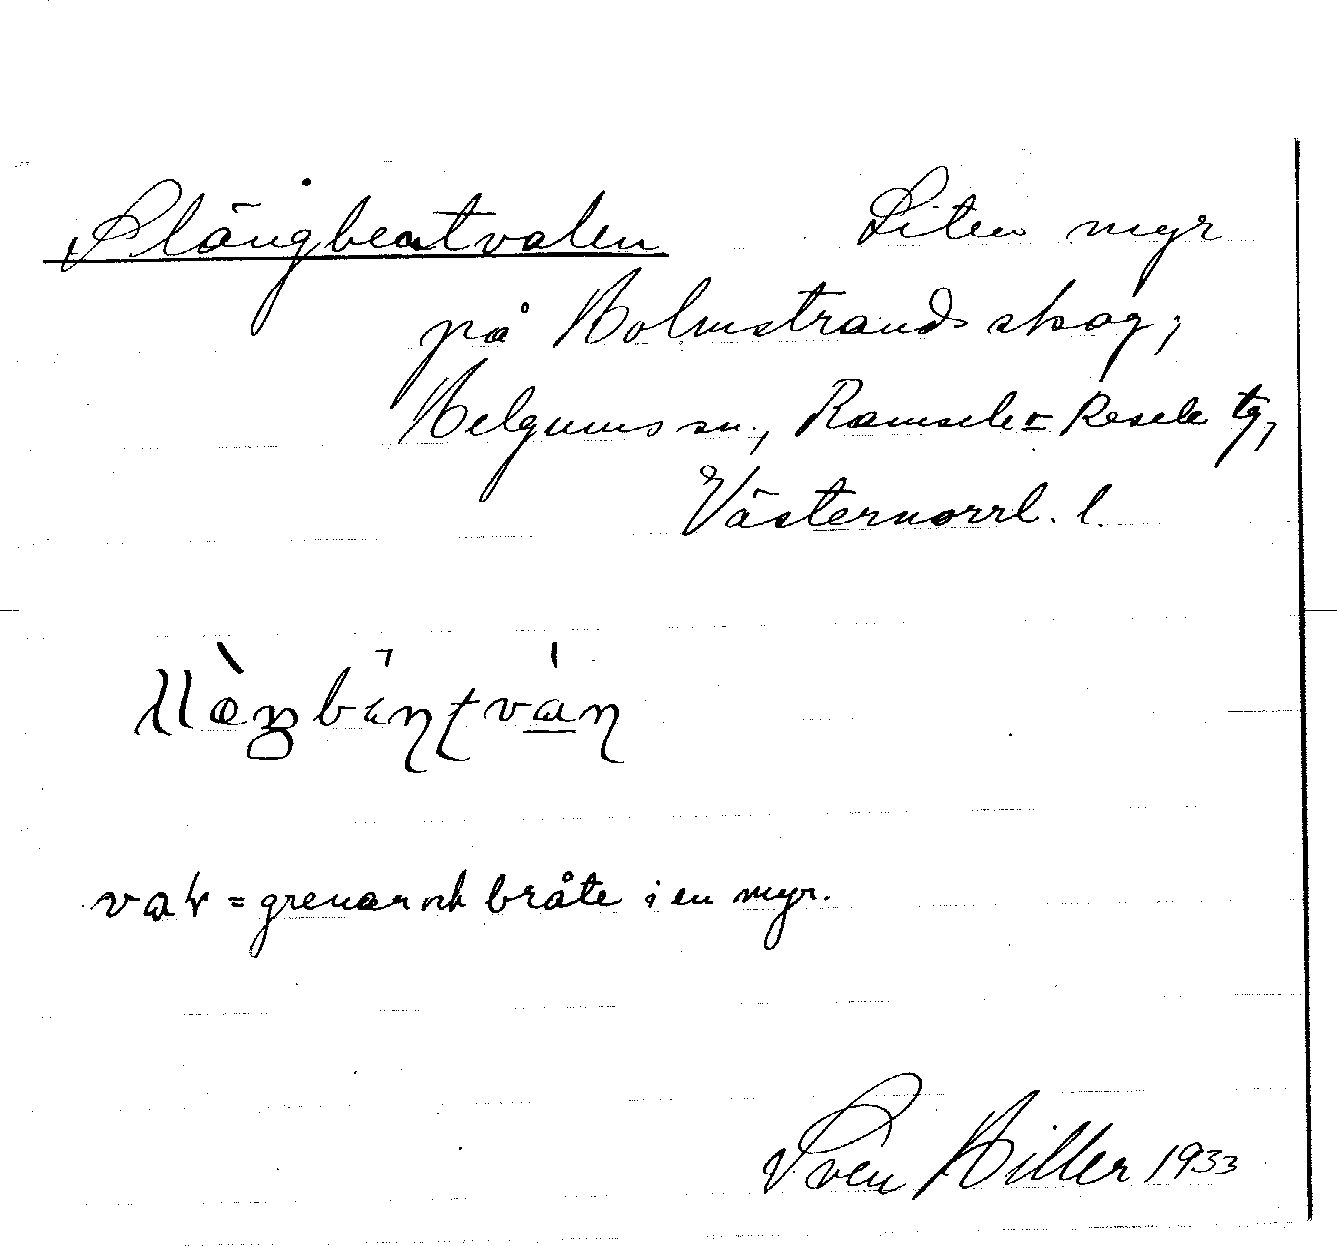 Slängbeatvalen Liten myr
på Holmstrands skog,
Helgums sn., Ramsele = Resele tg,
Västernorrl. l.
= grenar och bråte i en myr.
Sven Hiller 1933